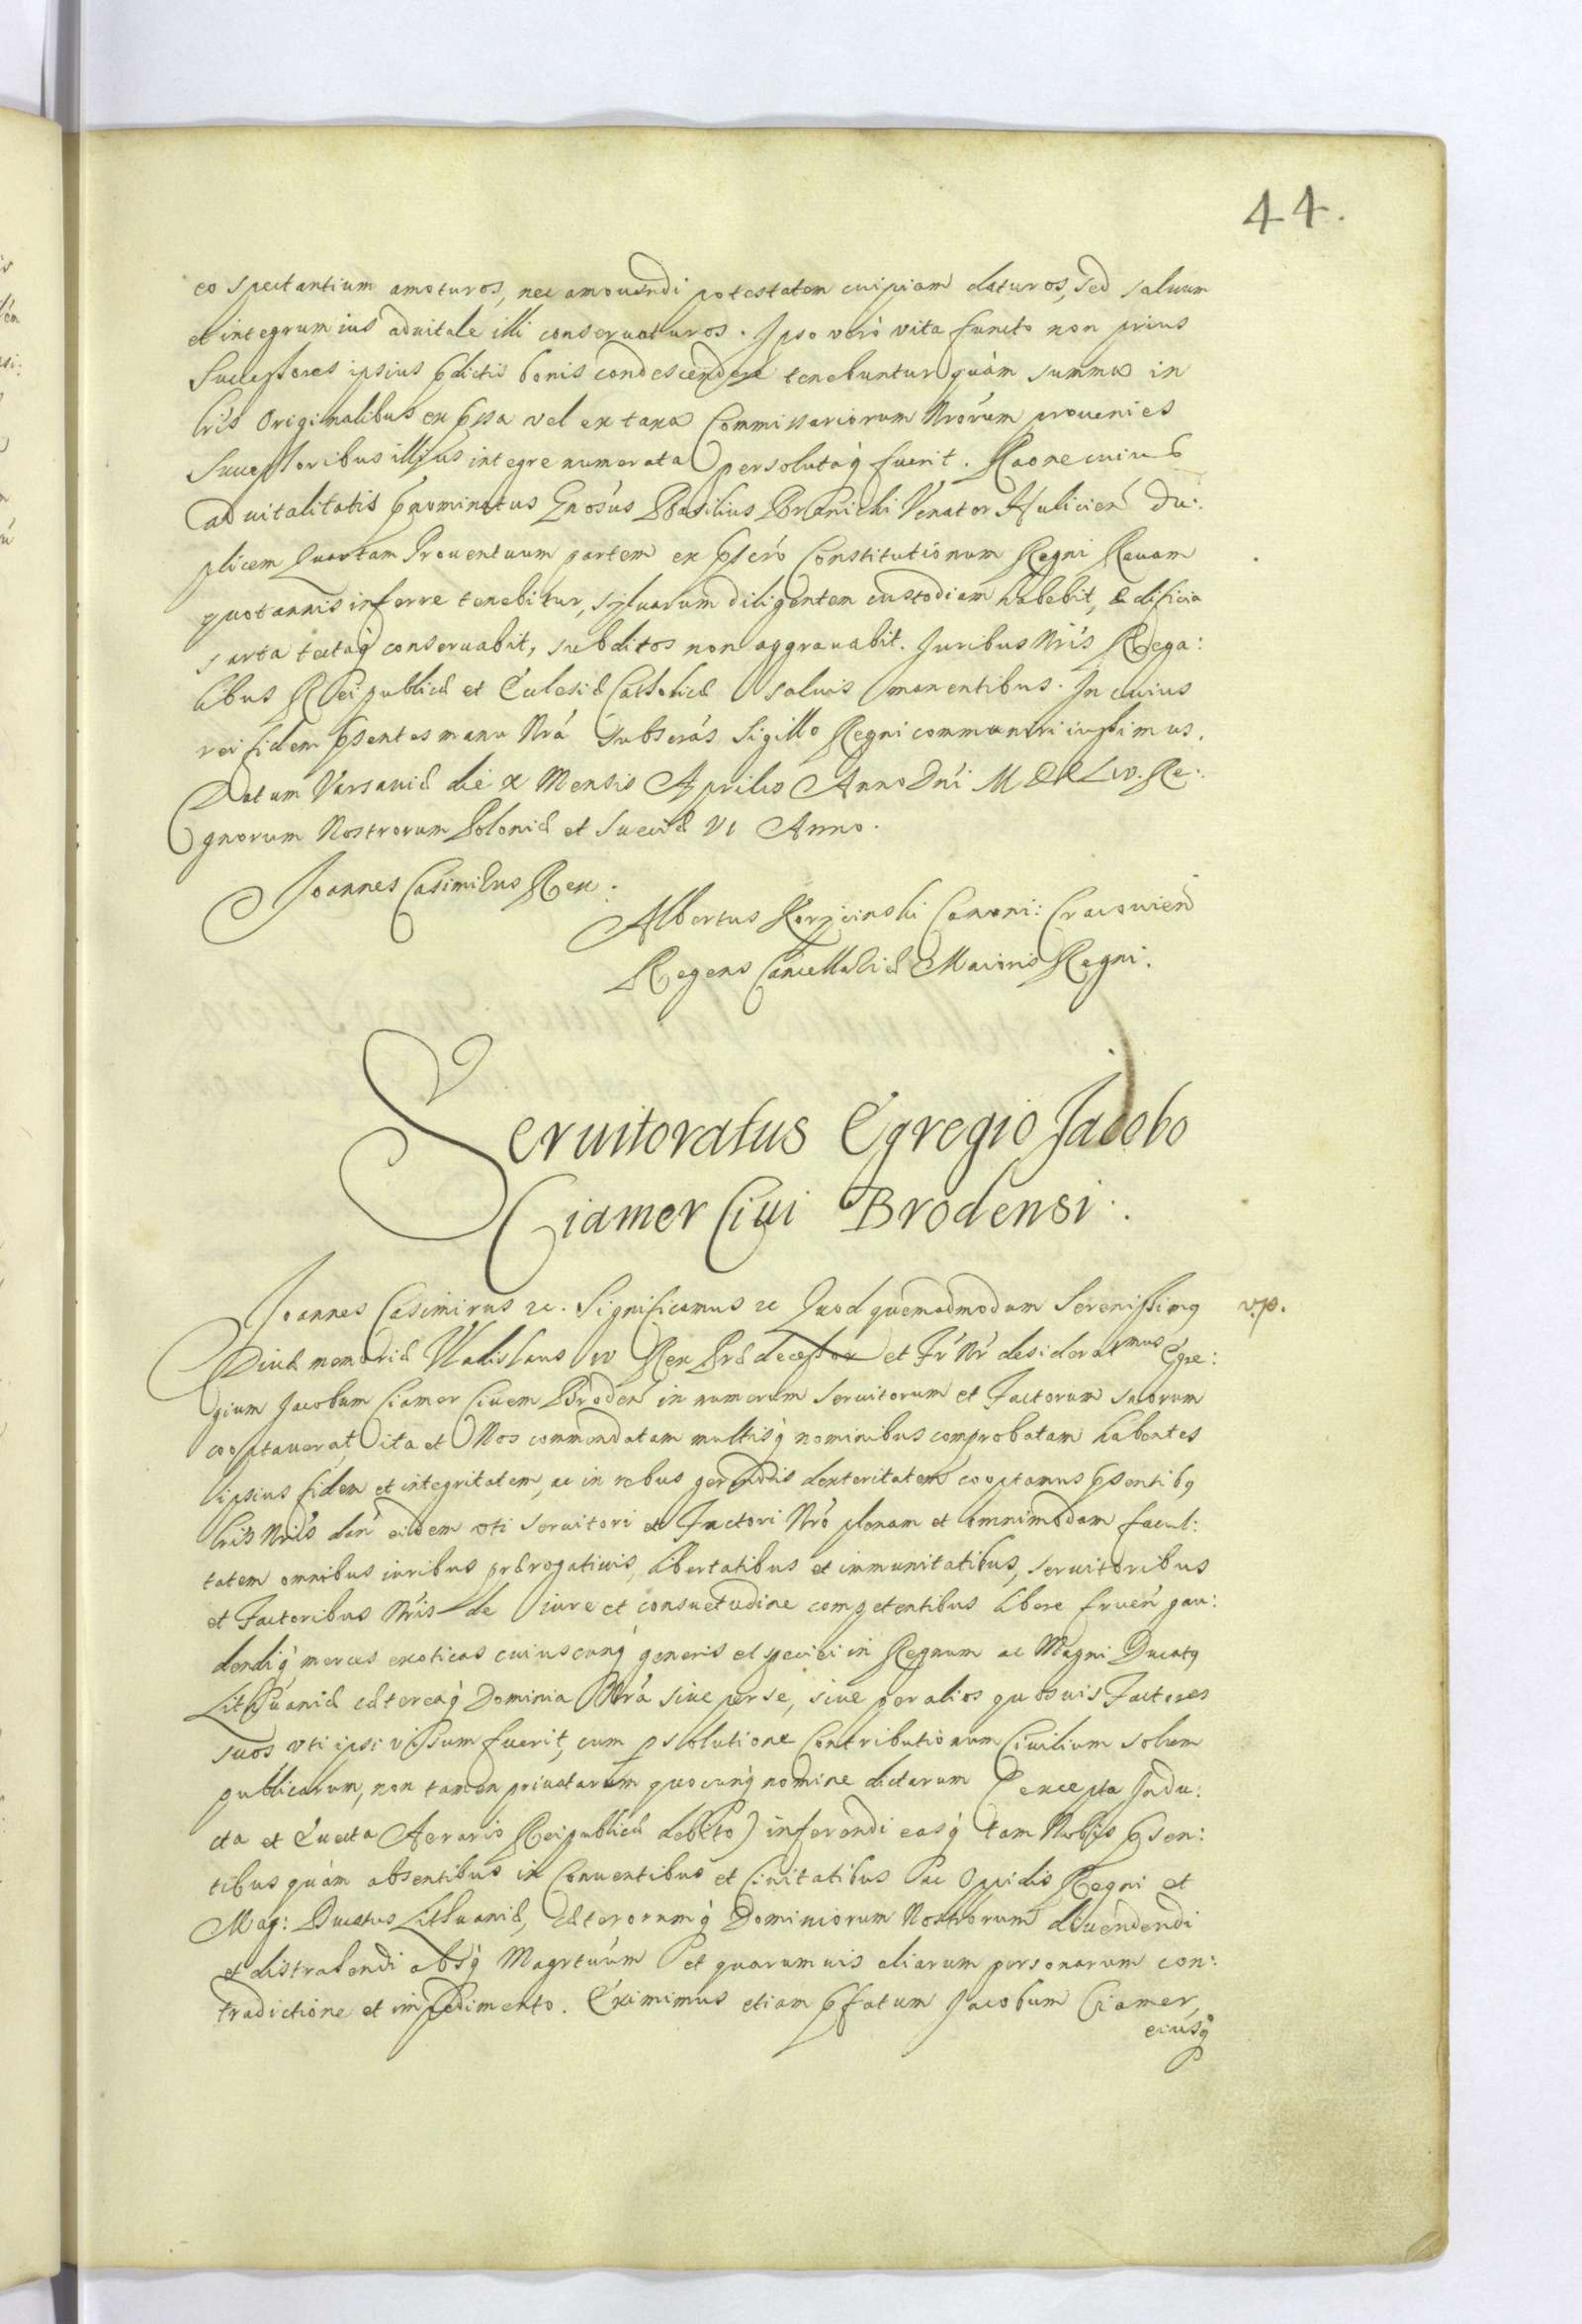 44.
eo spectantium amoturos, nec amouendi potestatem cuipiam daturos, sed saluum
et integrum ius aduitale illi conseruaturos. Ipso verò vita functo non prius
Successores ipsius pdictis bonis condescendere tenebuntur quàm summa in
Lris Originalibus expssa vel ex taxa Commissariorum Nrorum proueniēs
Successoribus illius integre numerata persolutaq́ fuerit. Raone cuius
aduitalitatis pnominatus Gnosus Basilius Branicki Venator Haliciēn du:
plicem Quartam Prouentuum partem ex pscro Constitutionum Regni Rauam
quotannis inferre tenebitur, syluarum diligentem custodiam habebit, ædificia
sarta tectaq́ conseruabit, subditos non aggrauabit. Juribus Nris Rega:
libus Reipublicæ et Ecclesiæ Catholicæ saluis manentibus. In cuius
rei fidem psentes manu Nrá subscrás Sigillo Regni communiri iussimus.
Datum Varsauiæ die X Mensis Aprilis Anno Dni MDCLIV. Re:
gnorum Nostrorum Poloniæ et Sueciæ VI Anno.
Joannes Casimirus Rex.
Albertus Koryciński Canoni: Cracouień
Regens Cancellariæ Maioris Regni.
Seruitoratus Egregio Jacobo
Ciamer Ciui Brodensi.
Joannes Casimirus &c. Significamus &c Quod quemadmodum Serenissimq v.p.
Diuæ memoriæ Vladislaus IV Rex Prædecessor et Fr Nr desideratmus Egre:
gium Jacobum Ciamer Ciuem Brodeń in numerum seruitorum et Factorum suorum
cooptauerat, ita et Nos commendatam multisq́ nominibus comprobatam habentes
ipsius fidem et integritatem, ac in rebus gerendis dexteritatem cooptamus psentibq
Lris Nris dań eidem vti seruitori et Factori Nro plenam et omnimodam facul:
tatem omnibus iuribus prærogatiuis, libertatibus et immunitatibus, seruitoribus
et Factoribus Nris de iure et consuetudine competentibus libere frueń gau:
dendiq́ merces exoticas cuiuscunq́ generis et speciei in Regnum ac Magni Ducatq
Lithuaniæ cæteraq́ Dominia Nra siue per se, siue per alios quosuis Factores
suos vti ipsi visum fuerit, cum psolutione Contributionum Ciuilium solum
publicarum, non tamen priuatarum quocunq́ nomine dictarum (excepta Indu:
cta et Euecta Aerario Reipublicæ debito) inferendi easq́ tam Nobis psen:
tibus quàm absentibus in Conuentibus et Ciuitatibus ac Oppidis Regni et
Mag: Ducatus Lithuaniæ, cæterorumq́ Dominiorum Nostrorum diuendendi
et distrahendi absq́ Magrtuum et quarumuis aliarum personarum con:
tradictione et impedimento. Eximimus etiam pfatum Jacobum Ciamer,
eiusq́